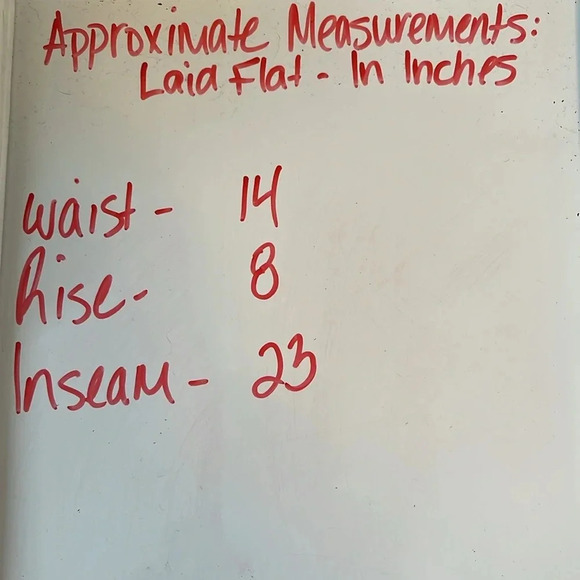 Approximate Measurements:
Laid Flat - In Inches
Waist - 14
Rise - 8
Inseam - 23